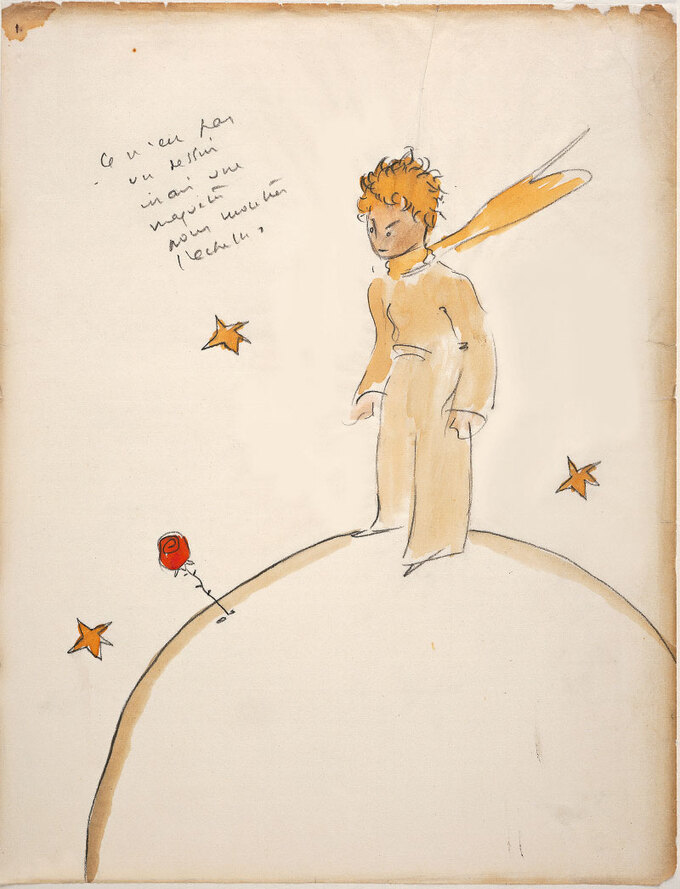 Ce n'est pas
un dessin
mais une
maquette
pour montrer
l'échelle.